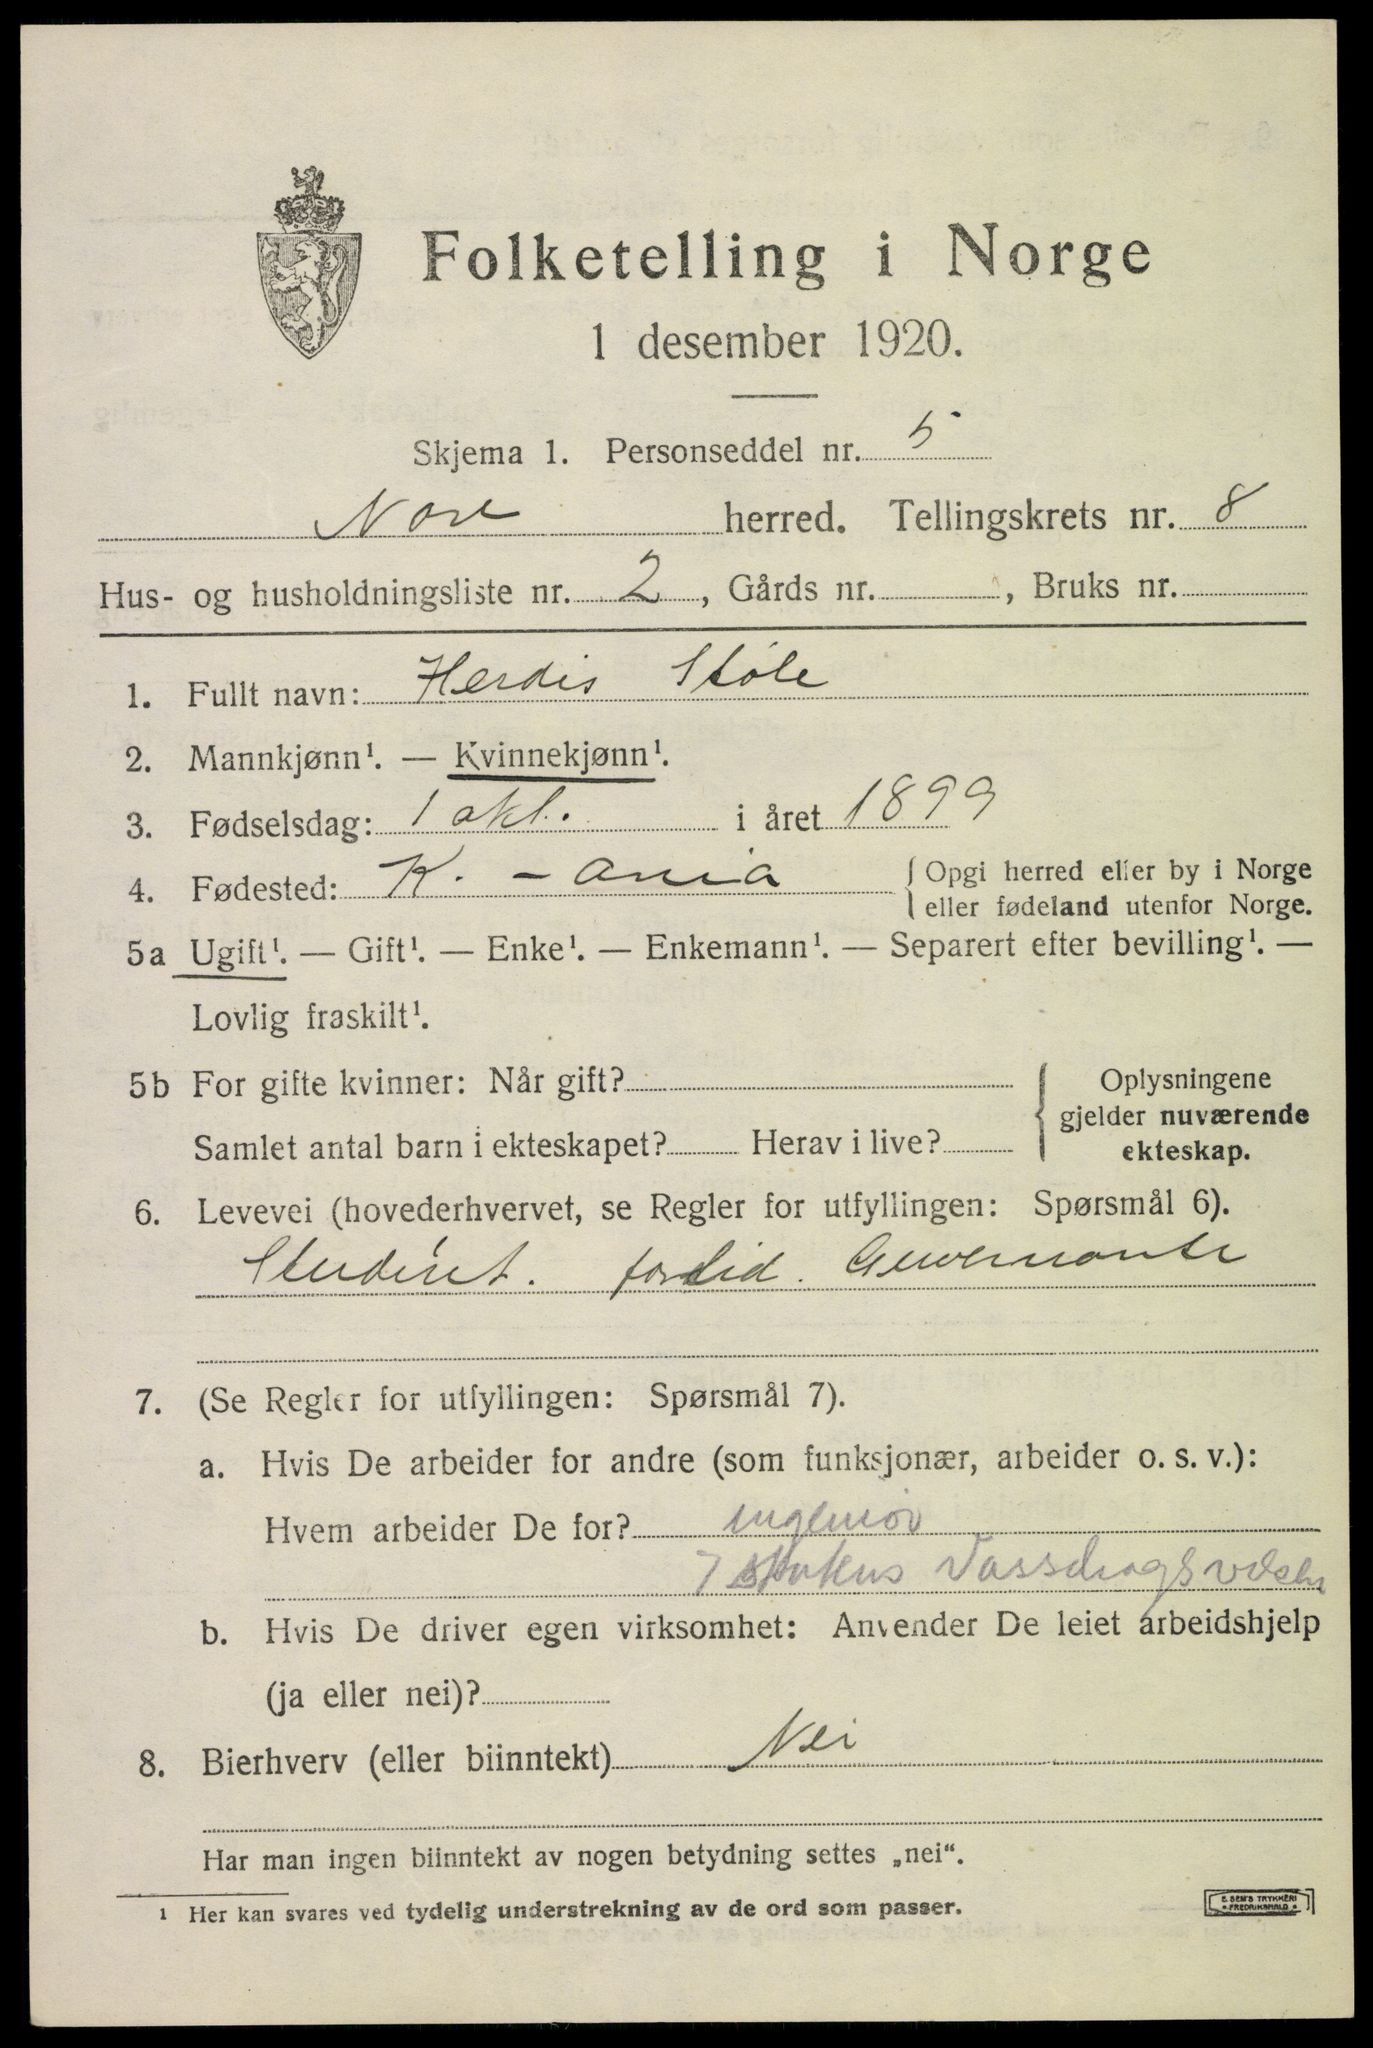 Folketelling i Norge
1 desember 1920.
Skjema 1. Personseddel nr. 5
Nore herred. Tellingskrets nr. 8
Hus- og husholdningsliste nr. 2, Gårds nr. , Bruks nr.
1. Fullt navn: Herdis Støle
2. Mannkjønn¹. — Kvinnekjønn¹.
3. Fødselsdag: 1 okt. i året 1899
4. Fødested: K. - ania { Opgi herred eller by i Norge
eller fødeland utenfor Norge.
5a Ugift¹. — Gift¹. — Enke¹. — Enkemann¹. — Separert efter bevilling¹. —
Lovlig fraskilt¹.
5b For gifte kvinner: Når gift? { Oplysningene
gjelder nuværende
Samlet antal barn i ekteskapet? Herav i live? ekteskap.
6. Levevei (hovederhvervet, se Regler for utfyllingen: Spørsmål 6).
Student. fortid. Guvernante
7. (Se Regler for utfyllingen: Spørsmål 7).
a. Hvis De arbeider for andre (som funksjonær, arbeider o. s. v.):
Hvem arbeider De for? ingeniør
I Statens Vassdragsvæsen
b. Hvis De driver egen virksomhet: Anvender De leiet arbeidshjelp
(ja eller nei)?
8. Bierhverv (eller biinntekt) Nei
Har man ingen biinntekt av nogen betydning settes „nei“.
¹ Her kan svares ved tydelig understrekning av de ord som passer.
E. SEM'S TRYKKERI
FREDRIKSHALD